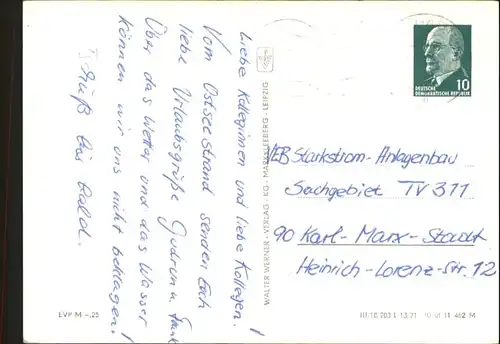 Liebe Kolleginnen und liebe Kollegen!
Vom Ostseestrand senden Euch
liebe Urlaubsgrüße Gudrun u. Frank
Über das Wetter und das Wasser
können wir uns nicht beklagen!
Gruß bis bald.
WALTER WERNER-VERLAG · KG · MARKKLEEBERG - LEIPZIG
10
DEUTSCHE
DEMOKRATISCHE REPUBLIK
VEB Starkstrom-Anlagenbau
Sachgebiet TV 311
90 Karl-Marx-Stadt
Heinrich-Lorenz-Str. 12
EVP M -,25
III/18 203 L 13/71 10 01 11 462 M